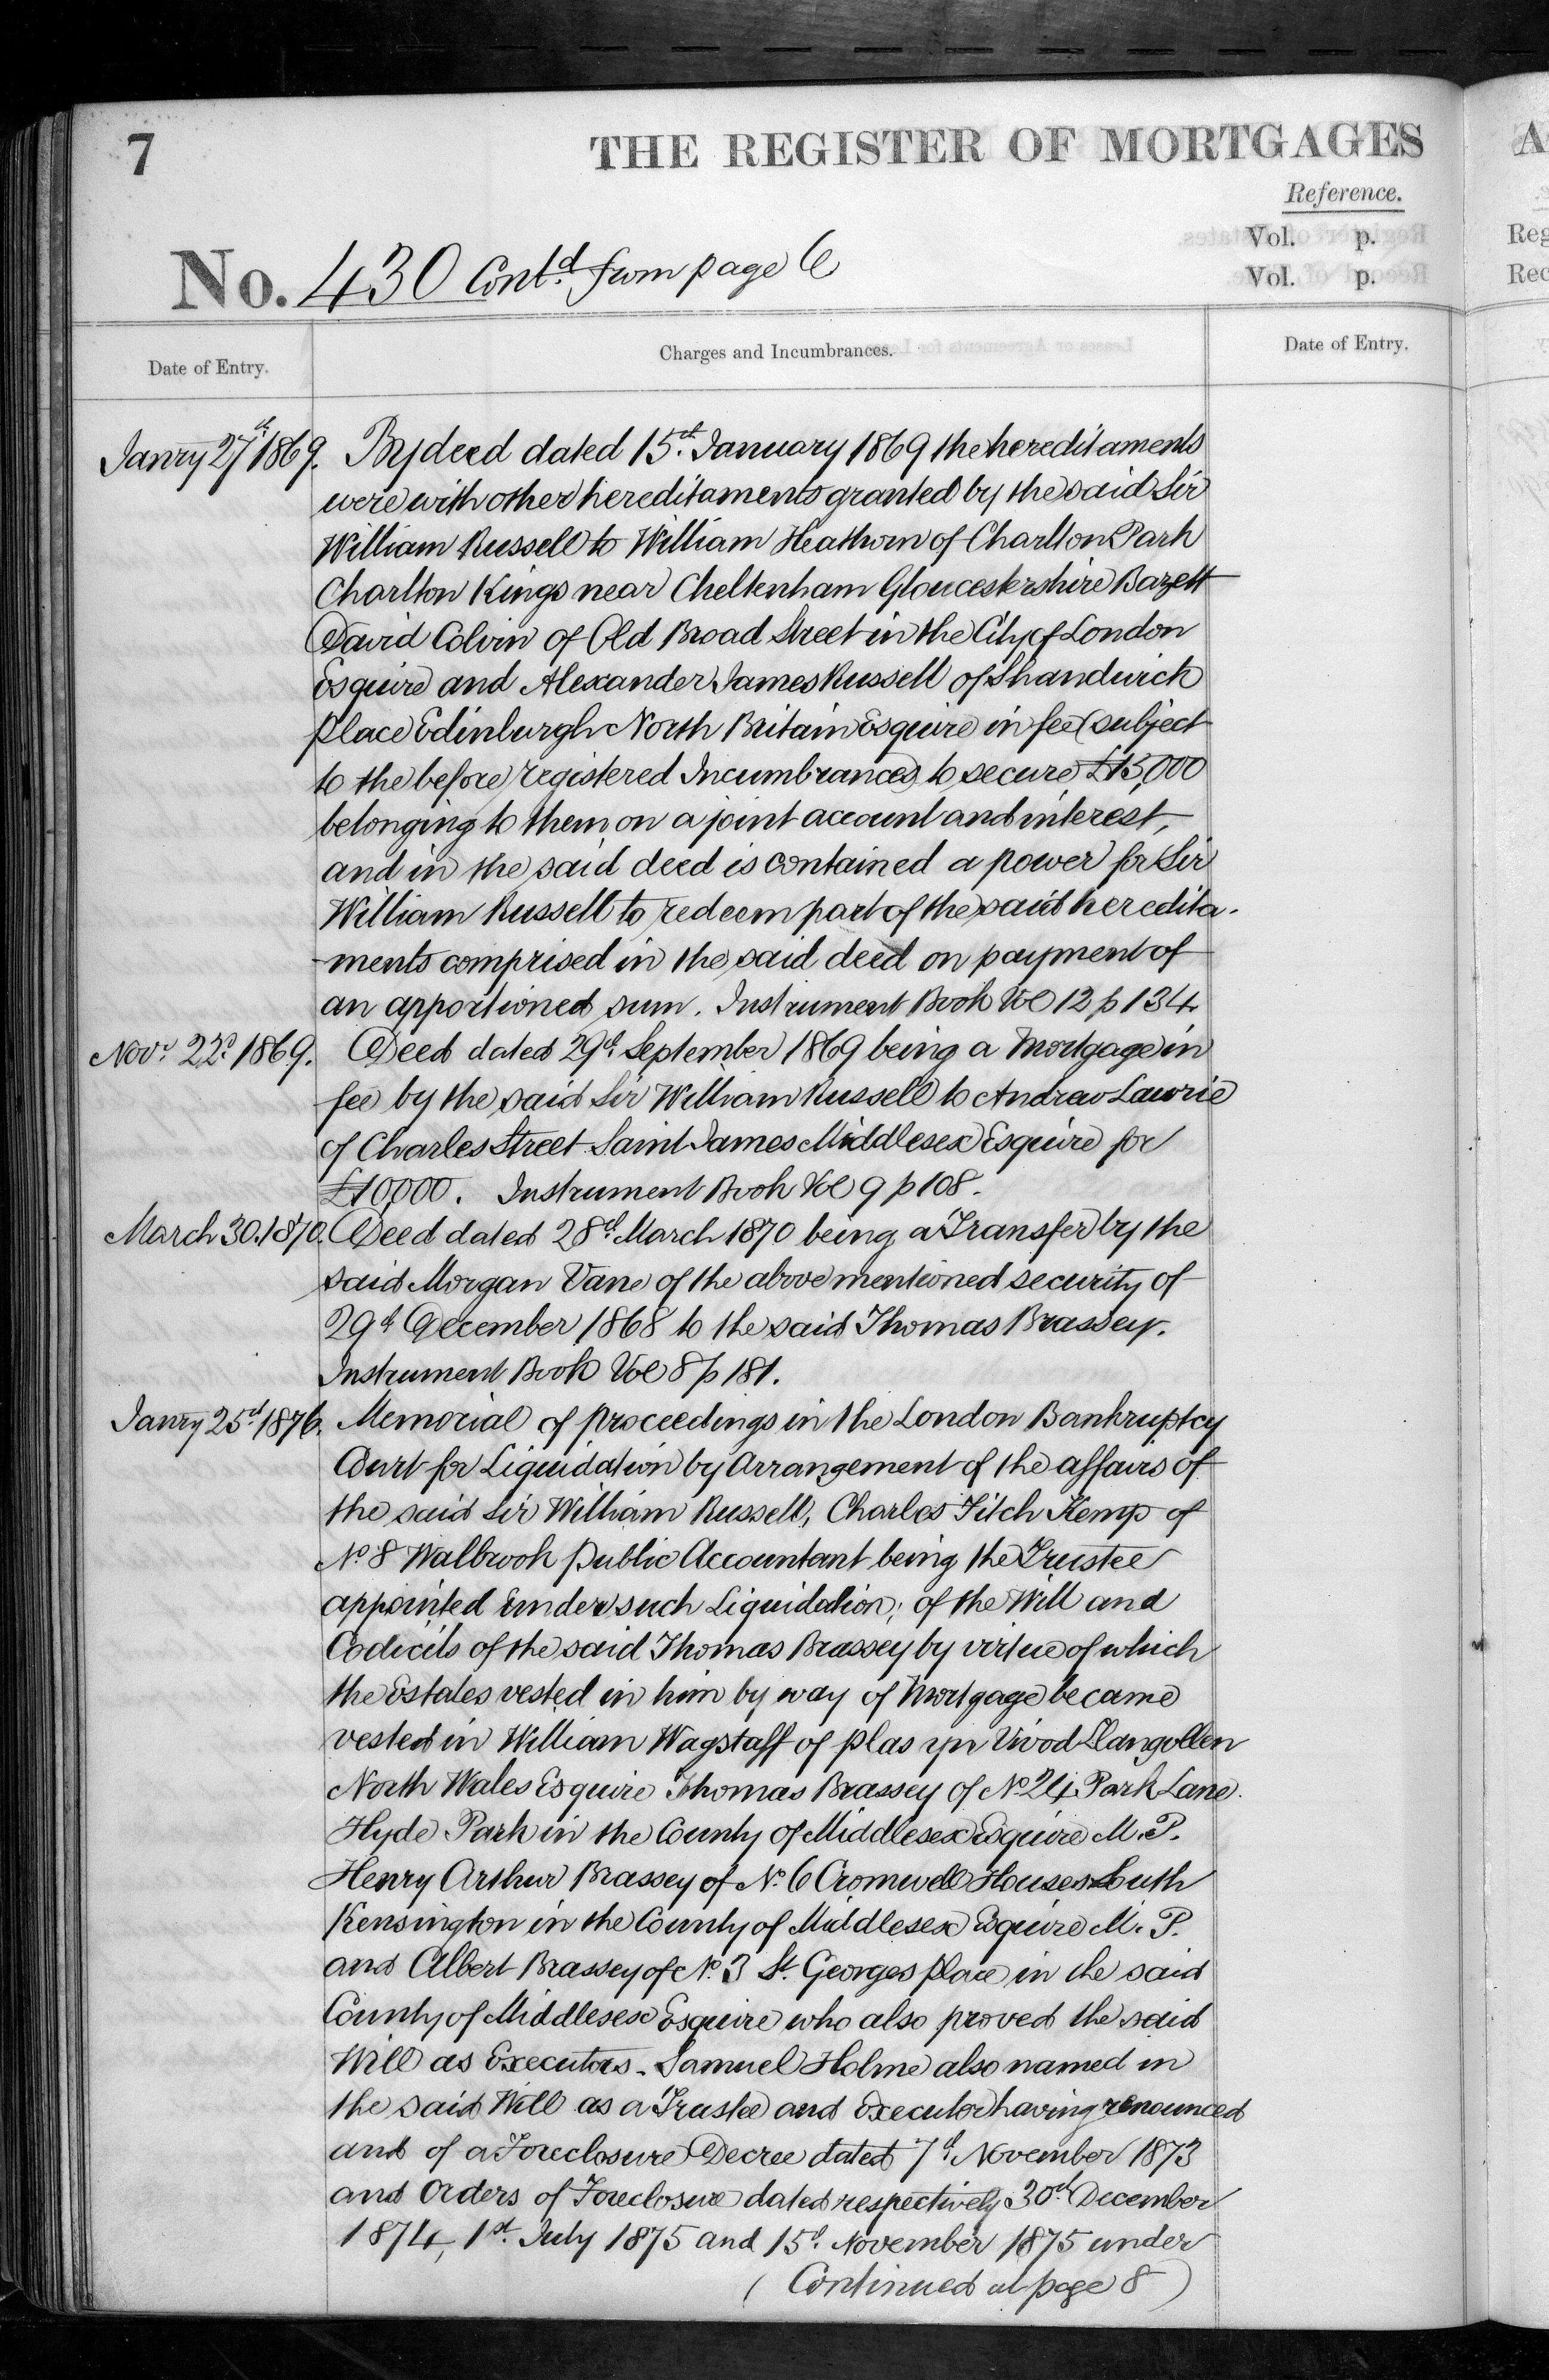 7
THE REGISTER OF MORTGAGES
Reference.
Vol. p.
Vol. p.
No. 430 Contd. from page 6
Date of Entry.
Charges and Incumbrances.
Date of Entry.
Janry 27th 1869. By deed dated 15th January 1869 the hereditaments
were with other hereditaments granted by the said Sir
William Russell to William Heathorn of Charlton Park
Charlton Kings near Cheltenham Gloucestershire Bazett
David Colvin of Old Broad Street in the City of London
Esquire and Alexander James Russell of Shandwick
place Edinburgh North Britain Esquire in fee (subject
to the before registered Incumbrances) to secure £15,000
belonging to them on a joint account and interest,
and in the said deed is contained a power for Sir
William Russell to redeem part of the said heredita-
-ments comprised in the said deed on payment of
an apportioned sum. Instrument Book Vol 12 p 134
Novr. 22d. 1869. Deed dated 29th September 1869 being a Mortgage in
fee by the said Sir William Russell to Andrew Lawrie
of Charles Street Saint James Middlesex Esquire for
£10,000. Instrument Book Vol 9 p 108.
March 30. 1870. Deed dated 28th March 1870 being a Transfer by the
said Morgan Vane of the above mentioned security of
29th December 1868 to the said Thomas Brassey.
Instrument Book Vol 8 p 181.
Janry 25th 1876. Memorial of proceedings in the London Bankruptcy
Court for Liquidation by Arrangement of the affairs of
the said Sir William Russell, Charles Fitch Kemp of
No 8 Walbrook public Accountant being the Trustee
appointed under such Liquidation; of the Will and
Codicils of the said Thomas Brassey by virtue of which
the Estates vested in him by way of Mortgage became
vested in William Wagstaff of plas yn Vivod Llangollen
North Wales Esquire Thomas Brassey of No 24 Park Lane
Hyde Park in the County of Middlesex Esquire M.P.
Henry Arthur Brassey of No. 6 Cromwell Houses South
Kensington in the County of Middlesex Esquire M.P.
and Albert Brassey of No. 3 St. Georges place in the said
County of Middlesex Esquire who also proved the said
Will as Executors. Samuel Holme also named in
the said Will as a Trustee and Executor having renounced
and of a Foreclosure Decree dated 7th November 1873
and Orders of Foreclosure dated respectively 30th December
1874, 1st. July 1875 and 15th. November 1875 under
(Continued at page 8)